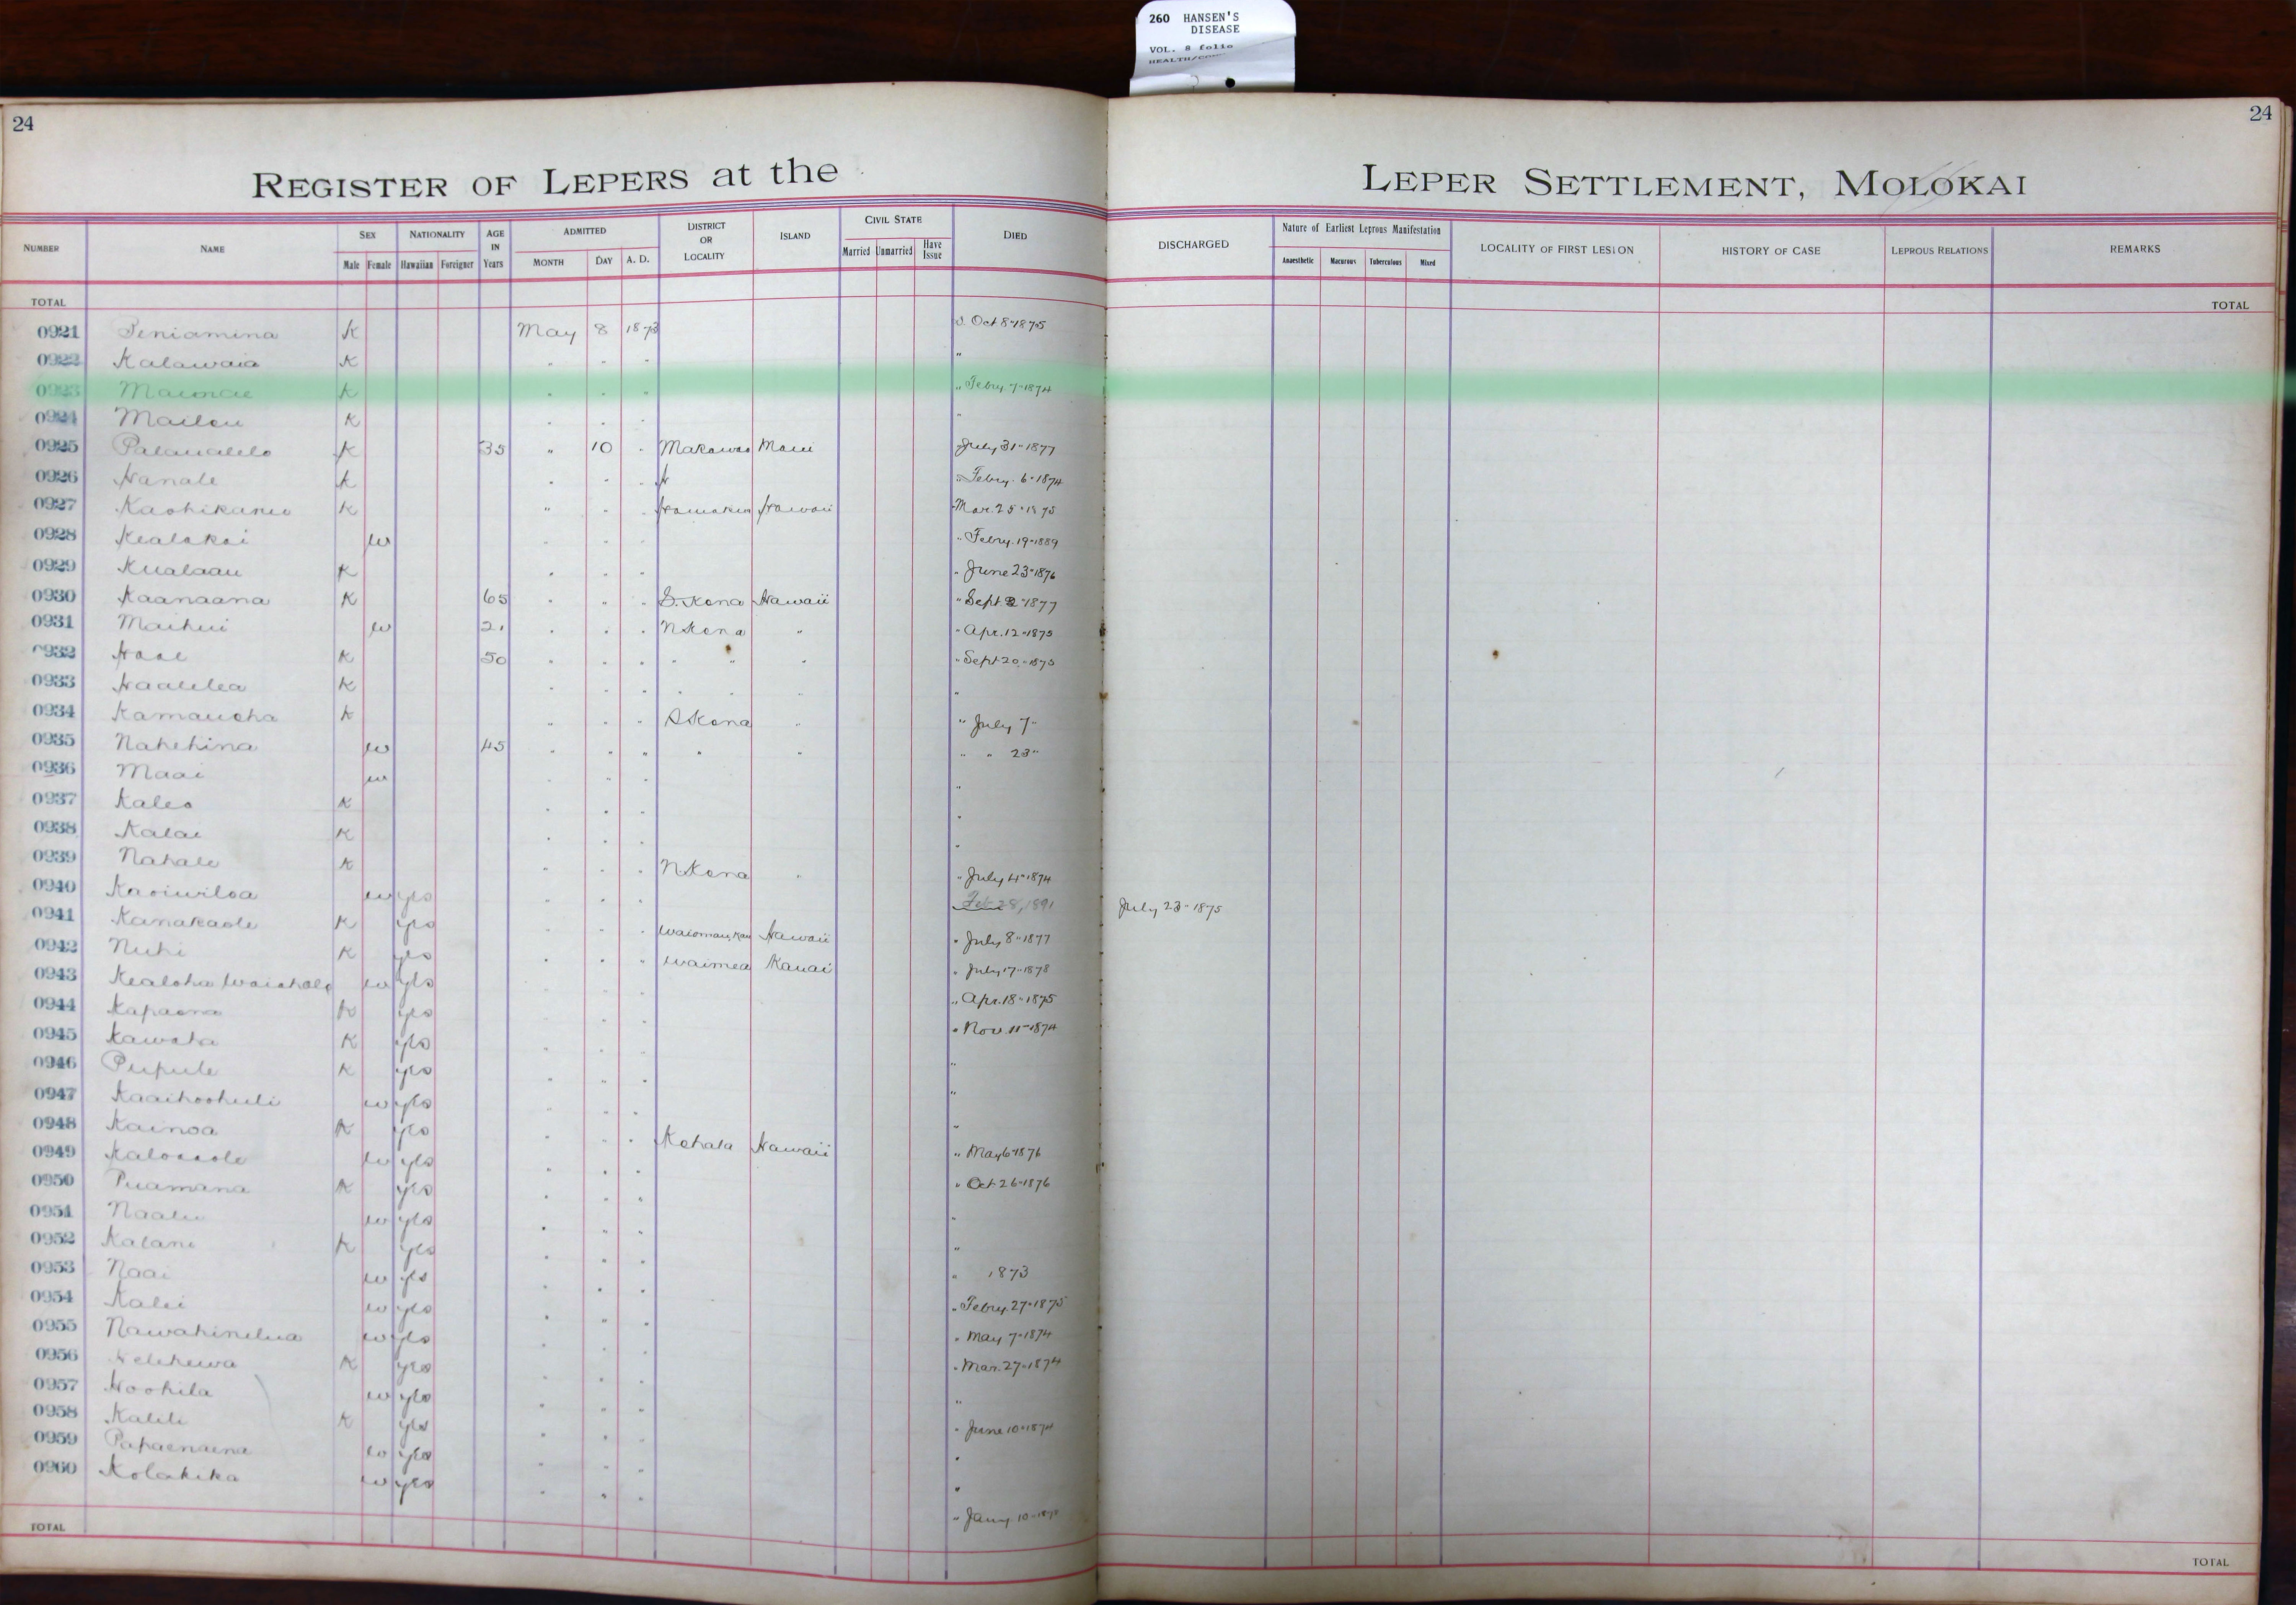 260 HANSEN'S
DISEASE
VOL. 8 folio
24
24
REGISTER OF LEPERS at the
LEPER SETTLEMENT, MOLOKAI
NUMBER NAME SEX Male Female NATIONALITY Hawaiian Foreigner AGE IN Years ADMITTED MONTH DAY A. D. DISTRICT OR LOCALITY ISLAND CIVIL STATE Married Unmarried Have Issue DIED
DISCHARGED Nature of Earliest Leprous Manifestation Anaesthetic Macurous Tuberculous Mixed LOCALITY OF FIRST LESION HISTORY OF CASE LEPROUS RELATIONS REMARKS
TOTAL TOTAL
0921 Peniamina K May 8 1873 D. Oct 8 " 1875
0922 Kalawaia K " " " "
0923 K " " " " Febry. 7 " 1874
0924 K " " " "
0925 K 35 " 10 " Makawao Maui July 31 " 1877
0926 Hanale K " " " " Febry. 6 " 1874
0927 K " " " Hamakua Hawaii Mar. 25 " 1875
0928 Kealakai w " " " " Febry. 19 " 1889
0929 Kualaau K " " " " June 23 " 1876
0930 Kaanaana K 65 " " " S. Kona Hawaii " Sept 2 " 1877
0931 Maihui w 21 " " " N Kona " " Apr. 12 " 1875
0932 K 50 " " " " " " " Sept 20 " 1875
0933 Haalelea K " " " " " " "
0934 Kamauoha K " " " S Kona " " July 7 "
0935 Nahehina w 45 " " " " " " " 23 "
0936 Maai w " " " "
0937 Kaleo K " " " "
0938 Kalai K " " " "
0939 Nahale K " " " N Kona " " July 4 " 1874
0940 Kaoiwiloa w yes " " " Feb 28, 1891 July 23 " 1875
0941 Kanakaole K yes " " " Hawaii " July 8 " 1877
0942 Nuhi K yes " " " Waimea Kauai " July 17 " 1878
0943 Kealoha w yes " " " " Apr. 18 " 1875
0944 Kapaona K yes " " " " Nov. 11 " 1874
0945 Kawaha K yes " " " "
0946 Pupule K yes " " " "
0947 Kaaihoohuli w yes " " " "
0948 Kainoa K yes " " " Kohala Hawaii " May 6 " 1876
0949 w yes " " " " Oct 26 " 1876
0950 Puamana K yes " " " "
0951 Naalu w yes " " " "
0952 Kalani K yes " " " " 1873
0953 Naai w yes " " " " Febry. 27 " 1875
0954 Kalei w yes " " " " May 7 " 1874
0955 w yes " " " " Mar. 27 " 1874
0956 K yes " " " "
0957 Hoohila w yes " " " " June 10 " 1874
0958 Kalili K yes " " " "
0959 Papaenaena w yes " " " "
0960 Kolakika w yes " " " " Jany. 10 "
TOTAL TOTAL